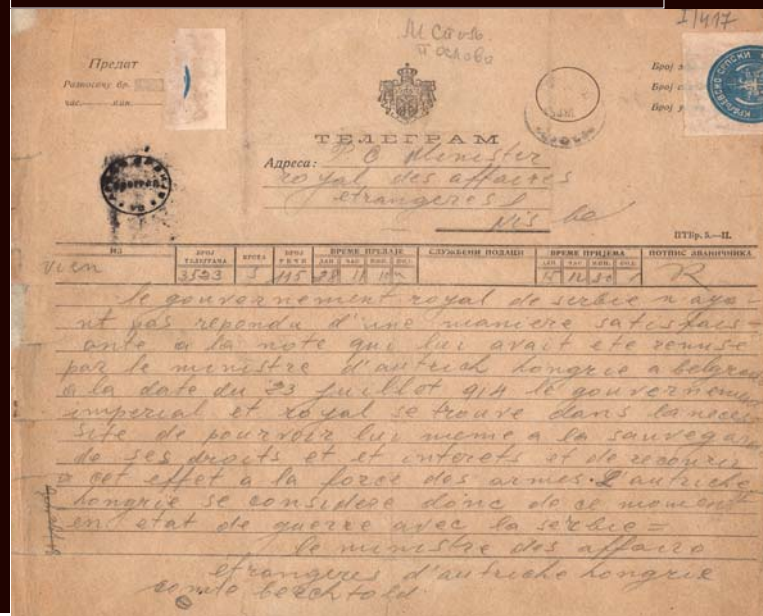 I/417
М Столь
Послова
Предат
Разносачу бр.
час. мин.
Број
Број
Број
ТЕЛЕГРАМ
Адреса: P O Minister
royal des affaires
etrangeres
Nis
ПТБр. 5.—II.
ИЗ БРОЈ ТЕЛЕГРАМА ВРСТА БРОЈ РЕЧИ ВРЕМЕ ПРЕДАЈЕ СЛУЖБЕНИ ПОДАЦИ ВРЕМЕ ПРИЈЕМА ПОТПИС ЗВАНИЧНИКА
ДАН ЧАС МИН. ДАН ЧАС МИН.
vien 3523 115 28 11 10 12 30
le gouvernement royal de serbie n ayo-
nt pas repondu d'une maniere satisfais-
ante a la note qui lui avait ete remise
par le ministre d'autrich hongrie a belgrade
a la date du 23 juillot 914 le gouvernement
imperial et royal se trouve dans la neces
site de pourvoir lui meme a la sauvegar
de ses droits et et interets et de recourir
a cet effet a la force des armes. L'autriche
hongrie se considere donc de ce moment
en etat de guerre avec la serbie =
le ministre des affairo
etrangeres d'autriche hongrie
comte berchtold